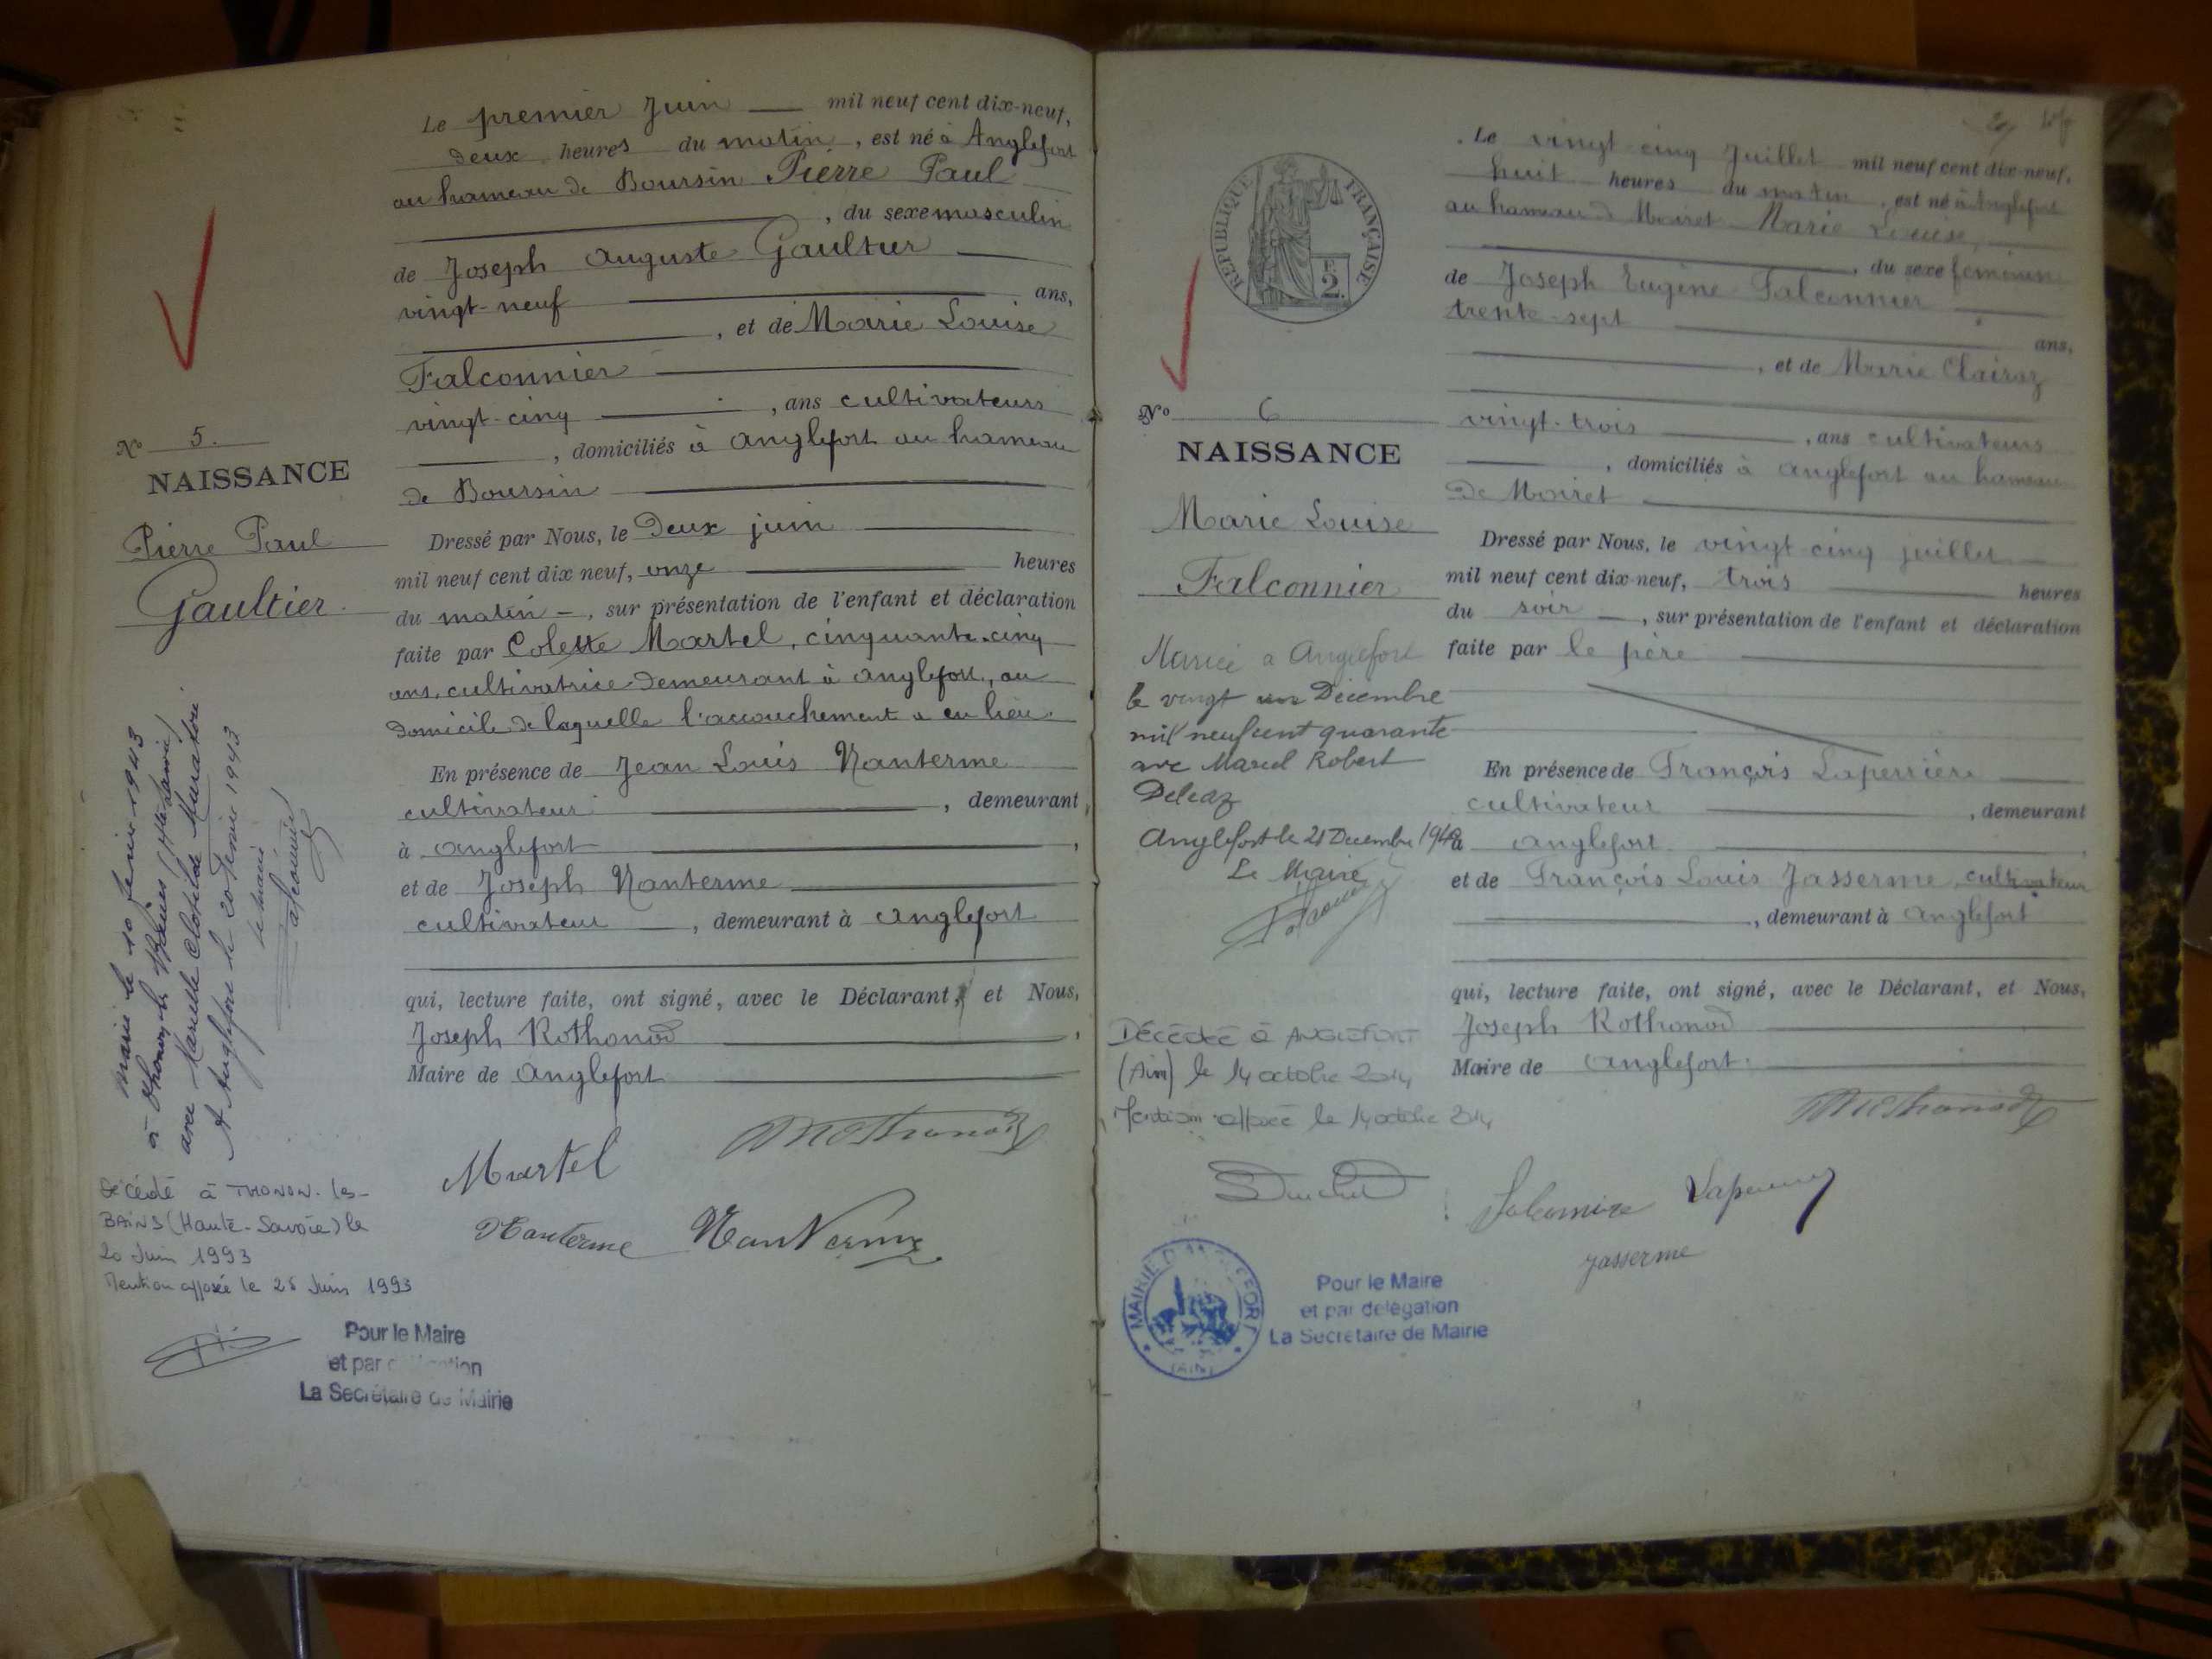 Le premier Juin mil neuf cent dix-neuf,
deux heures du matin, est né à Anglefort
au hameau de Boursin Pierre Paul
, du sexe masculin
de Joseph Auguste Gaultier
vingt-neuf ans,
, et de Marie Louise
Falconnier
vingt-cinq , ans cultivateurs
, domiciliés à Anglefort au hameau
de Boursin
Dressé par Nous, le Deux juin
mil neuf cent dix neuf, onze heures
du matin, sur présentation de l'enfant et déclaration
faite par Colette Martel, cinquante-cinq
ans, cultivatrice demeurant à Anglefort, au
domicile de laquelle l'accouchement a eu lieu.
En présence de Jean Louis Nanterme
cultivateur , demeurant
à Anglefort ,
et de Joseph Nanterme
cultivateur , demeurant à Anglefort
qui, lecture faite, ont signé, avec le Déclarant, et Nous,
Joseph Rothonod ,
Maire de Anglefort
Martel
Nanterme Nanterme
No 5.
NAISSANCE
Pierre Paul
Gaultier
Marié le 10 février 1943
à Thonon les Bains (Hte Savoie)
avec Marcelle Clotilde Muratori
A Anglefort le 20 Février 1943
le maire
Falconnier
Décédé à THONON-les-
BAINS (Haute-Savoie) le
20 Juin 1993
Mention apposée le 28 Juin 1993
Pour le Maire
et par délégation
La Secrétaire de Mairie
REPUBLIQUE FRANÇAISE
2
Le vingt-cinq Juillet mil neuf cent dix-neuf,
huit heures du matin, est né à Anglefort
au hameau de Mairet Marie Louise,
, du sexe féminin
de Joseph Eugène Falconnier
trente-sept ans,
, et de Marie Clairaz
vingt-trois , ans cultivateurs
, domiciliés à Anglefort au hameau
de Mairet
Dressé par Nous, le vingt-cinq juillet
mil neuf cent dix-neuf, trois heures
du soir, sur présentation de l'enfant et déclaration
faite par le père
En présence de François Laperrière
cultivateur , demeurant
à Anglefort
et de François Louis Jasserme cultivateur
, demeurant à Anglefort
qui, lecture faite, ont signé, avec le Déclarant, et Nous,
Joseph Rothonod
Maire de Anglefort.
Jasserme
No 6
NAISSANCE
Marie Louise
Falconnier
Mariée à Anglefort
le vingt un Décembre
mil neuf cent quarante
avec Marcel Robert
Anglefort le 21 Décembre 1940
Le Maire
DÉCÉDÉE à ANGLEFORT
(Ain) le 14 octobre 2014
Mention apposée le 14 octobre 2014
MAIRIE D'ANGLEFORT
(AIN)
Pour le Maire
et par délégation
La Secrétaire de Mairie